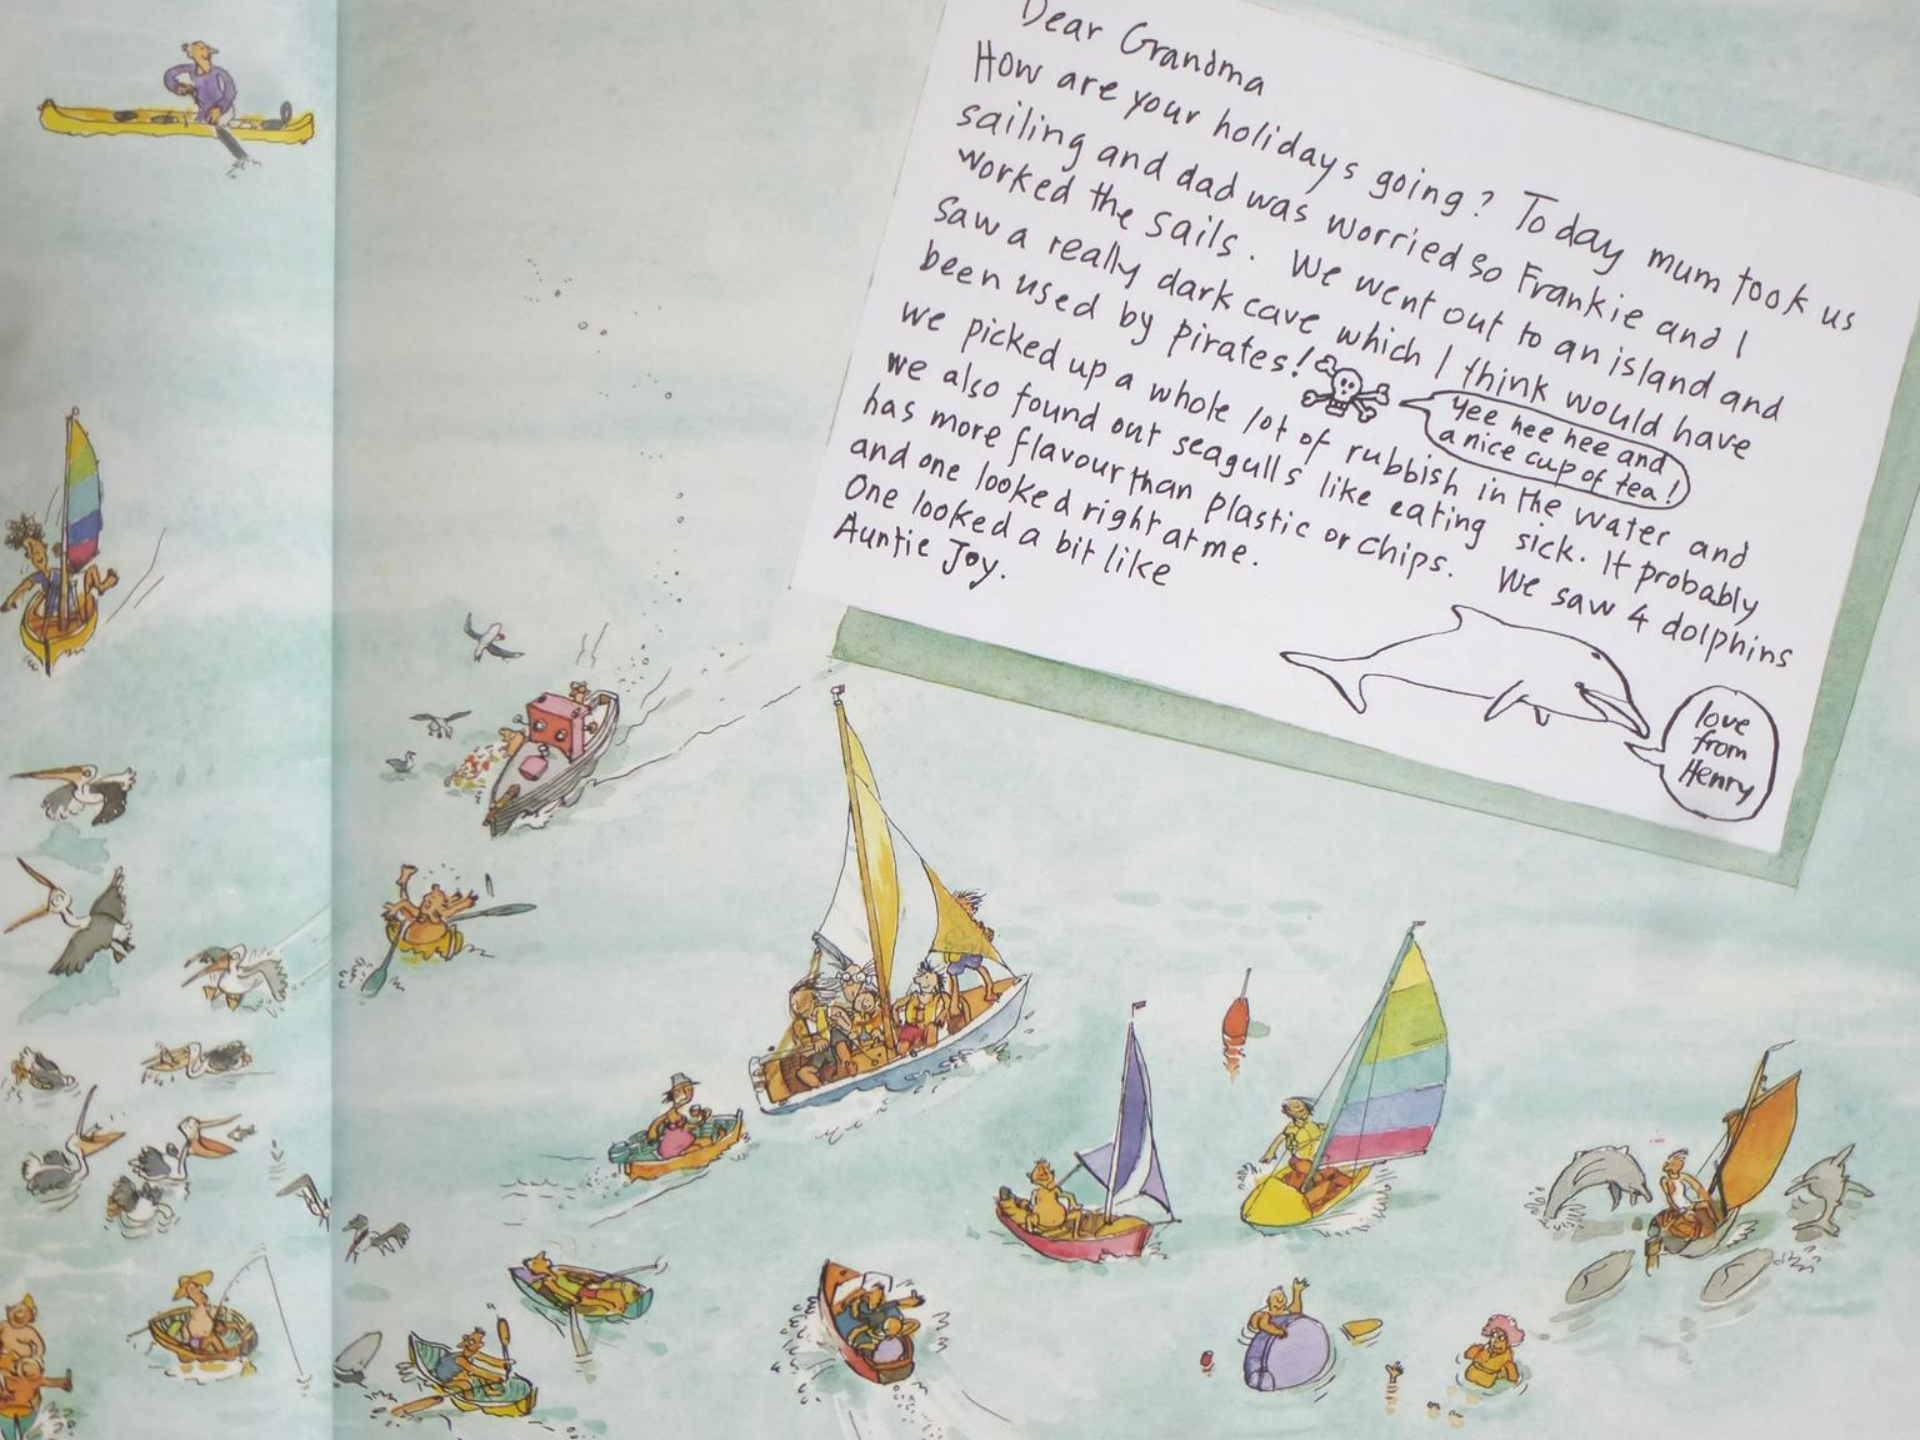 Dear Grandma
How are your holidays going? Today mum took us
sailing and dad was worried so Frankie and I
worked the sails. We went out to an island and
saw a really dark cave which I think would have
been used by pirates!
yee hee hee and
a nice cup of tea!
we picked up a whole lot of rubbish in the water and
we also found out seagulls like eating sick. It probably
has more flavour than plastic or chips. We saw 4 dolphins
and one looked right at me.
One looked a bit like
Auntie Joy.
love
from
Henry